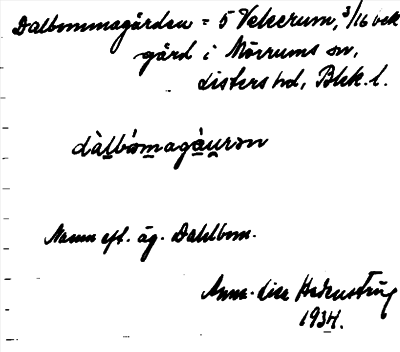 Dalbommagården = 5 Vekerum, 3/16 mtl
gård i Mörrums sn,
Listers hd, Blek. l.
dàlbómagàuṛən
Namn eft. äg. Dahlbom.
Anna-Lisa
1934.